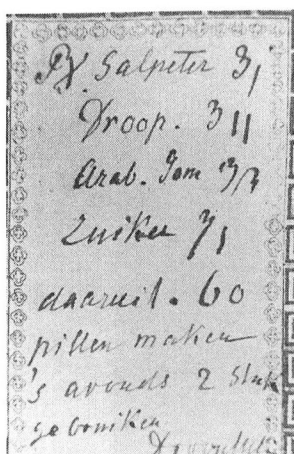 ℞. Salpeter ʒ,
Droop. ʒ ıı
Arab. Gom
Zuiker ʒ,
daaruit. 60
pillen maken
's avonds 2 Stuk
gebruiken